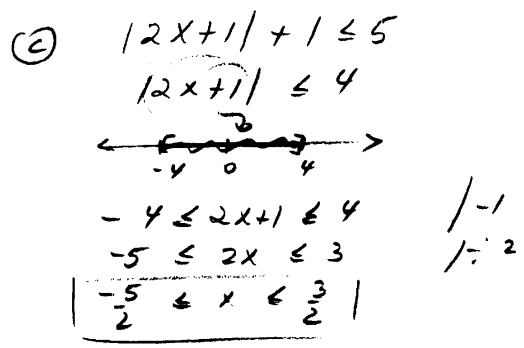 (c) |2x+1| + 1 ≤ 5
|2x+1| ≤ 4
-4 0 4
-4 ≤ 2x+1 ≤ 4 /-1
-5 ≤ 2x ≤ 3 /÷2
-5/2 ≤ x ≤ 3/2